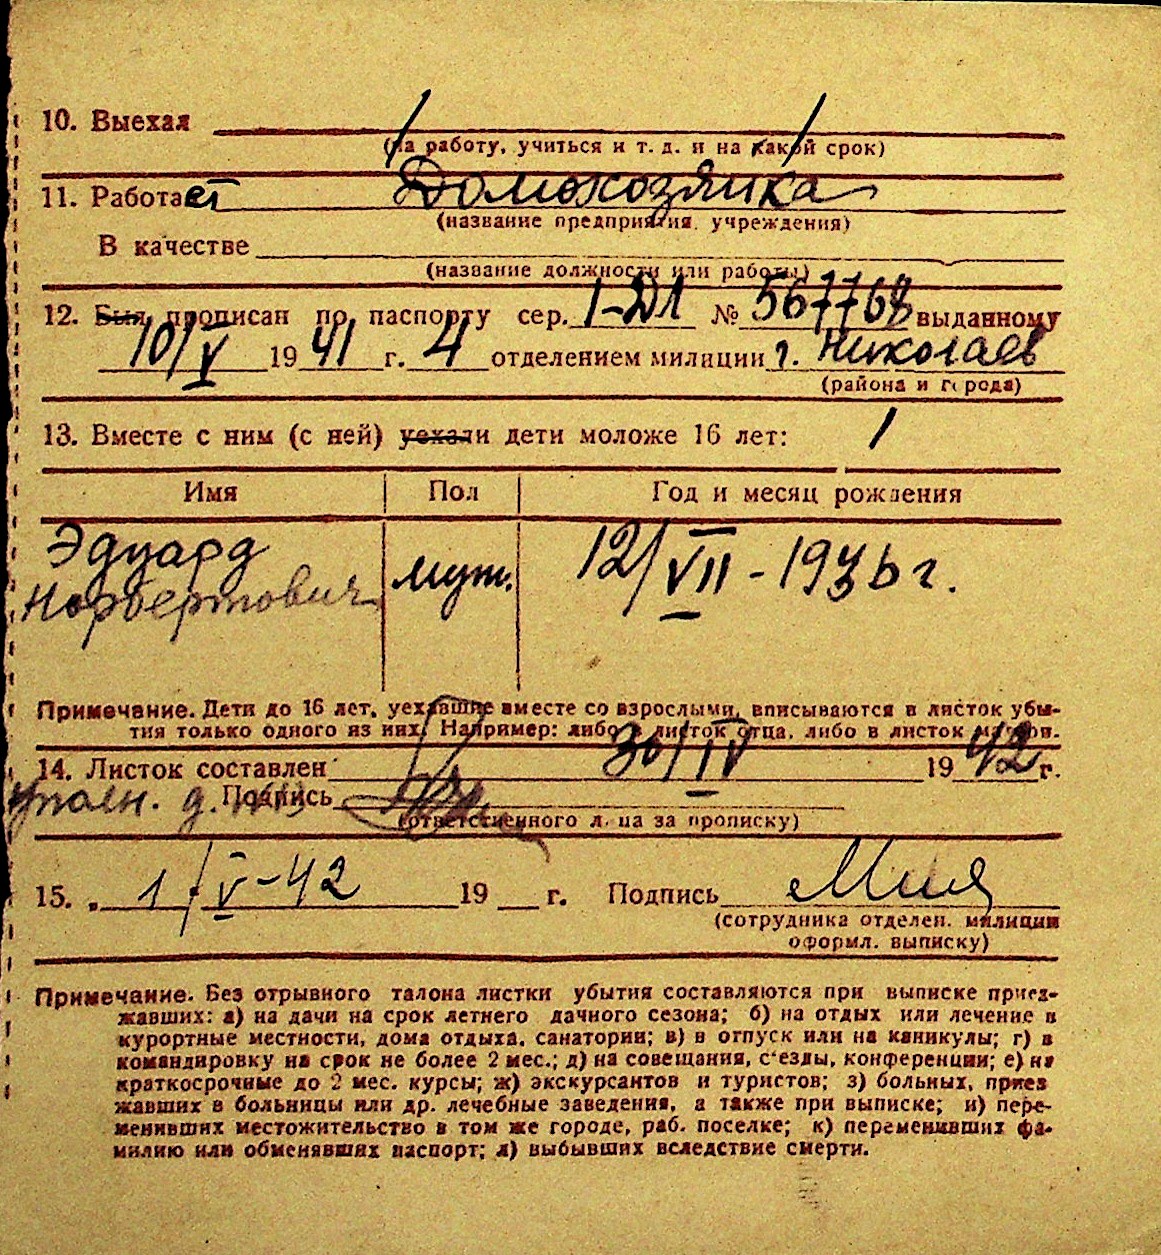 10. Выехал
(на работу, учиться и т. д. и на какой срок)
11. Работает Домохозяйка
(название предприятия, учреждения)
В качестве
(название должности или работы)
12. Был прописан по паспорту сер. I-ДЛ № 567768 выданному
10/V 1941 г. 4 отделением милиции г. Николаев
(района и города)
13. Вместе с ним (с ней) уехали дети моложе 16 лет: 1
Имя Пол Год и месяц рождения
Эдуард
Норбертович муж. 12/VII-1936 г.
Примечание. Дети до 16 лет, уехавшие вместе со взрослыми, вписываются в листок убы-
тия только одного из них. Например: либо в листок отца, либо в листок матери.
14. Листок составлен 30/IV 1942 г.
Подпись
(ответственного лица за прописку)
15. „ 1/V-42 19 г. Подпись
(сотрудника отделен. милиции
оформл. выписку)
Примечание. Без отрывного талона листки убытия составляются при выписке приез-
жавших: а) на дачи на срок летнего дачного сезона; б) на отдых или лечение в
курортные местности, дома отдыха, санатории; в) в отпуск или на каникулы; г) в
командировку на срок не более 2 мес.; д) на совещания, с'езды, конференции; е) на
краткосрочные до 2 мес. курсы; ж) экскурсантов и туристов; з) больных, приез
жавших в больницы или др. лечебные заведения, а также при выписке; и) пере-
менивших местожительство в том же городе, раб. поселке; к) переменивших фа-
милию или обменявших паспорт; л) выбывших вследствие смерти.